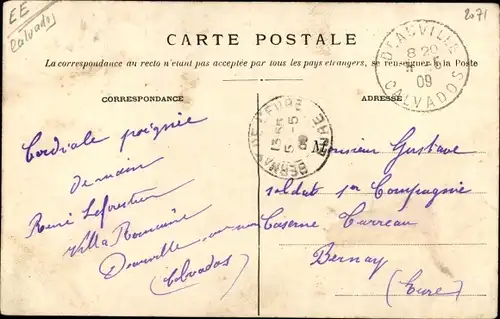 EE
Calvados
2071
CARTE POSTALE
La correspondance au recto n'étant pas acceptée par tous les pays étrangers, se renseigner à la Poste
CORRESPONDANCE
ADRESSE
DEAUVILLE
8 20
5
09
CALVADOS
BERNAY EURE
13
5 -5
Cordiale poignée
de main
René
Villa Romaine
Deauville sur mer
(Calvados)
Monsieur Gustave
soldat 1re Compagnie
Caserne Turreau
Bernay
(Eure)